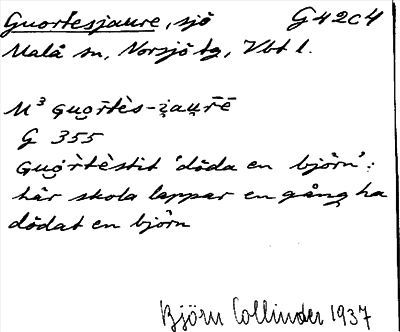 Guortesjaure, sjö G42c4
Malå sn, Norsjö tg, Vbt l.
M³ guo̯r̄tès-i̯au̯r̄ē
G 355
guo̯r̄tèstit 'döda en björn':
här skola lappar en gång ha
dödat en björn
Björn Collinder 1937